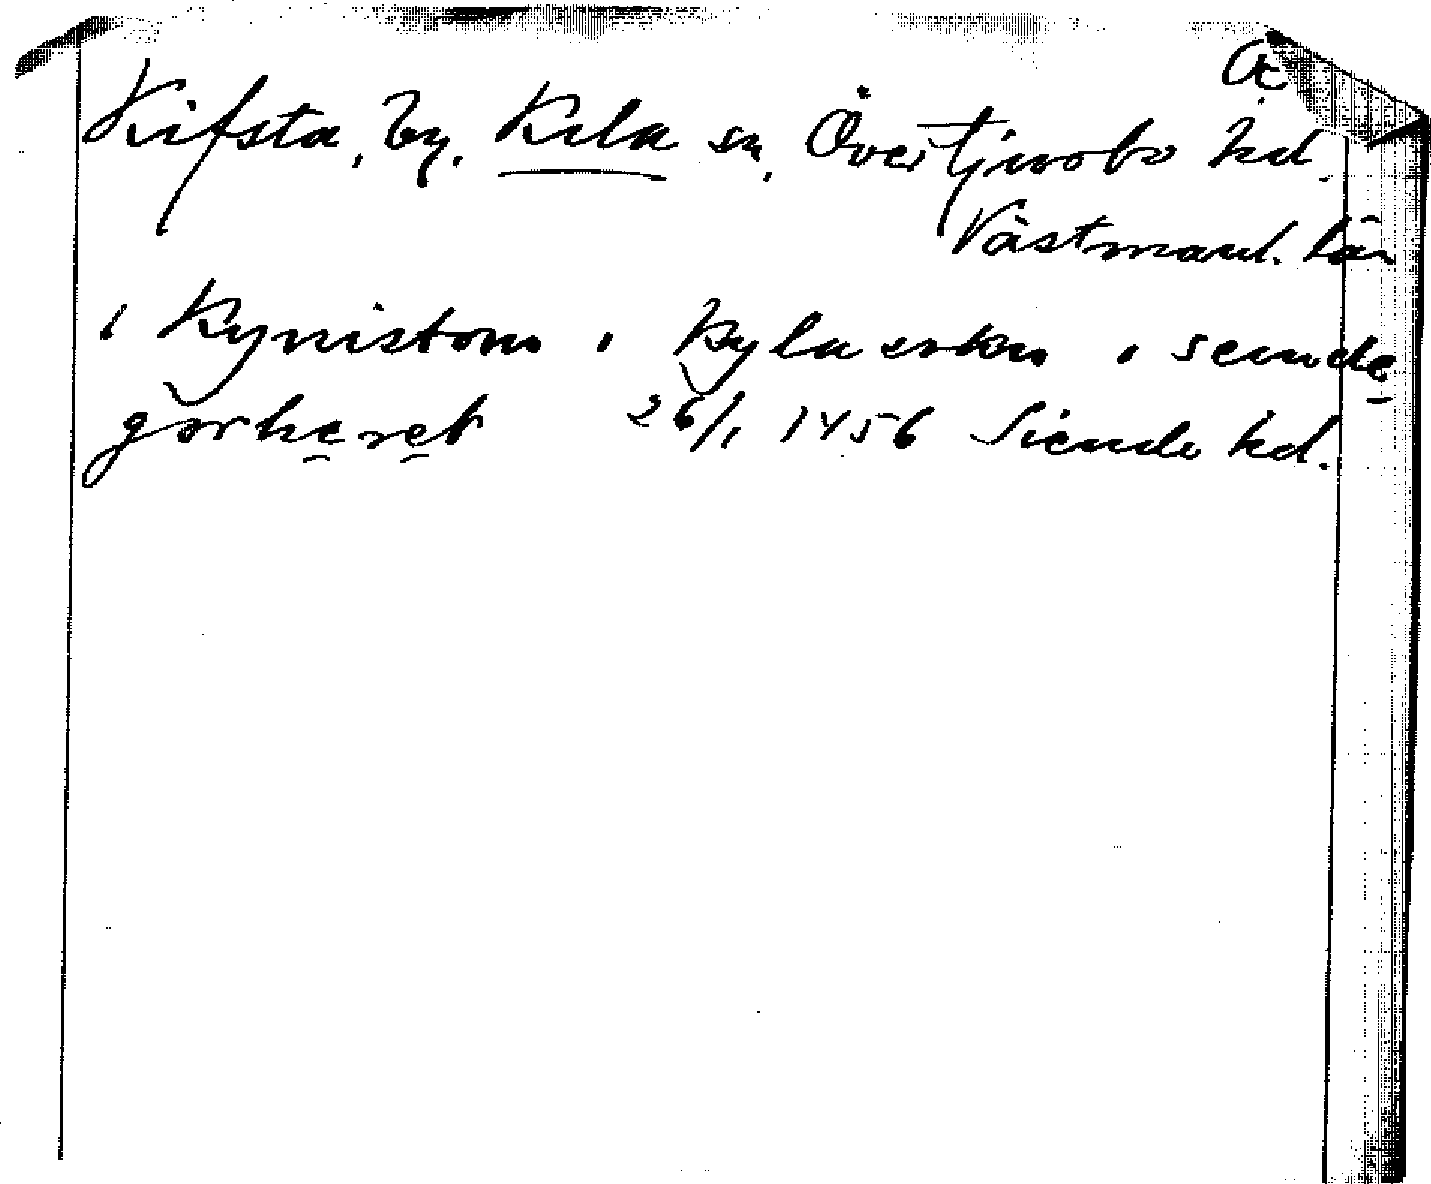 Kifsta, by, Kila sn, Övertjurbo hd.
Västmanl. län
i Kynistom i Kyla sokn i sende
görheret 26/1 1456 Siende hd.